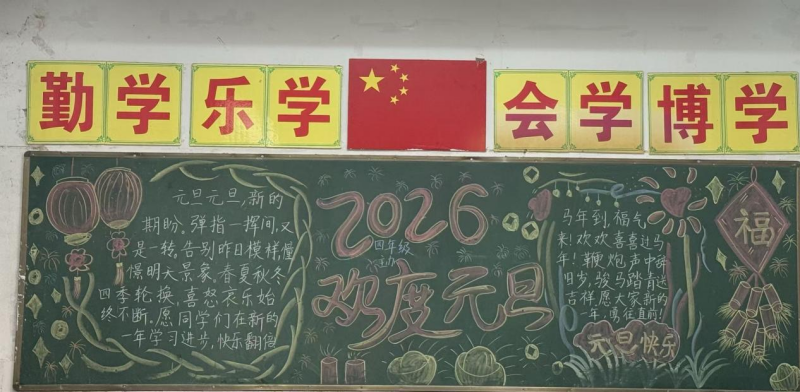 勤学 乐学 会学 博学
元旦元旦,新的
期盼,弹指一挥间,又
是一转,告别昨日模样,憧
憬明天景象,春夏秋冬
四季轮换,喜怒哀乐始
终不断,愿同学们在新的
一年学习进步,快乐翻倍
2026
四年级
欢度元旦
马年到,福气
来!欢欢喜喜过马
年!鞭炮声中辞
旧岁,骏马踏青送
吉祥愿大家新的
一年,勇往直前!
元旦快乐
福